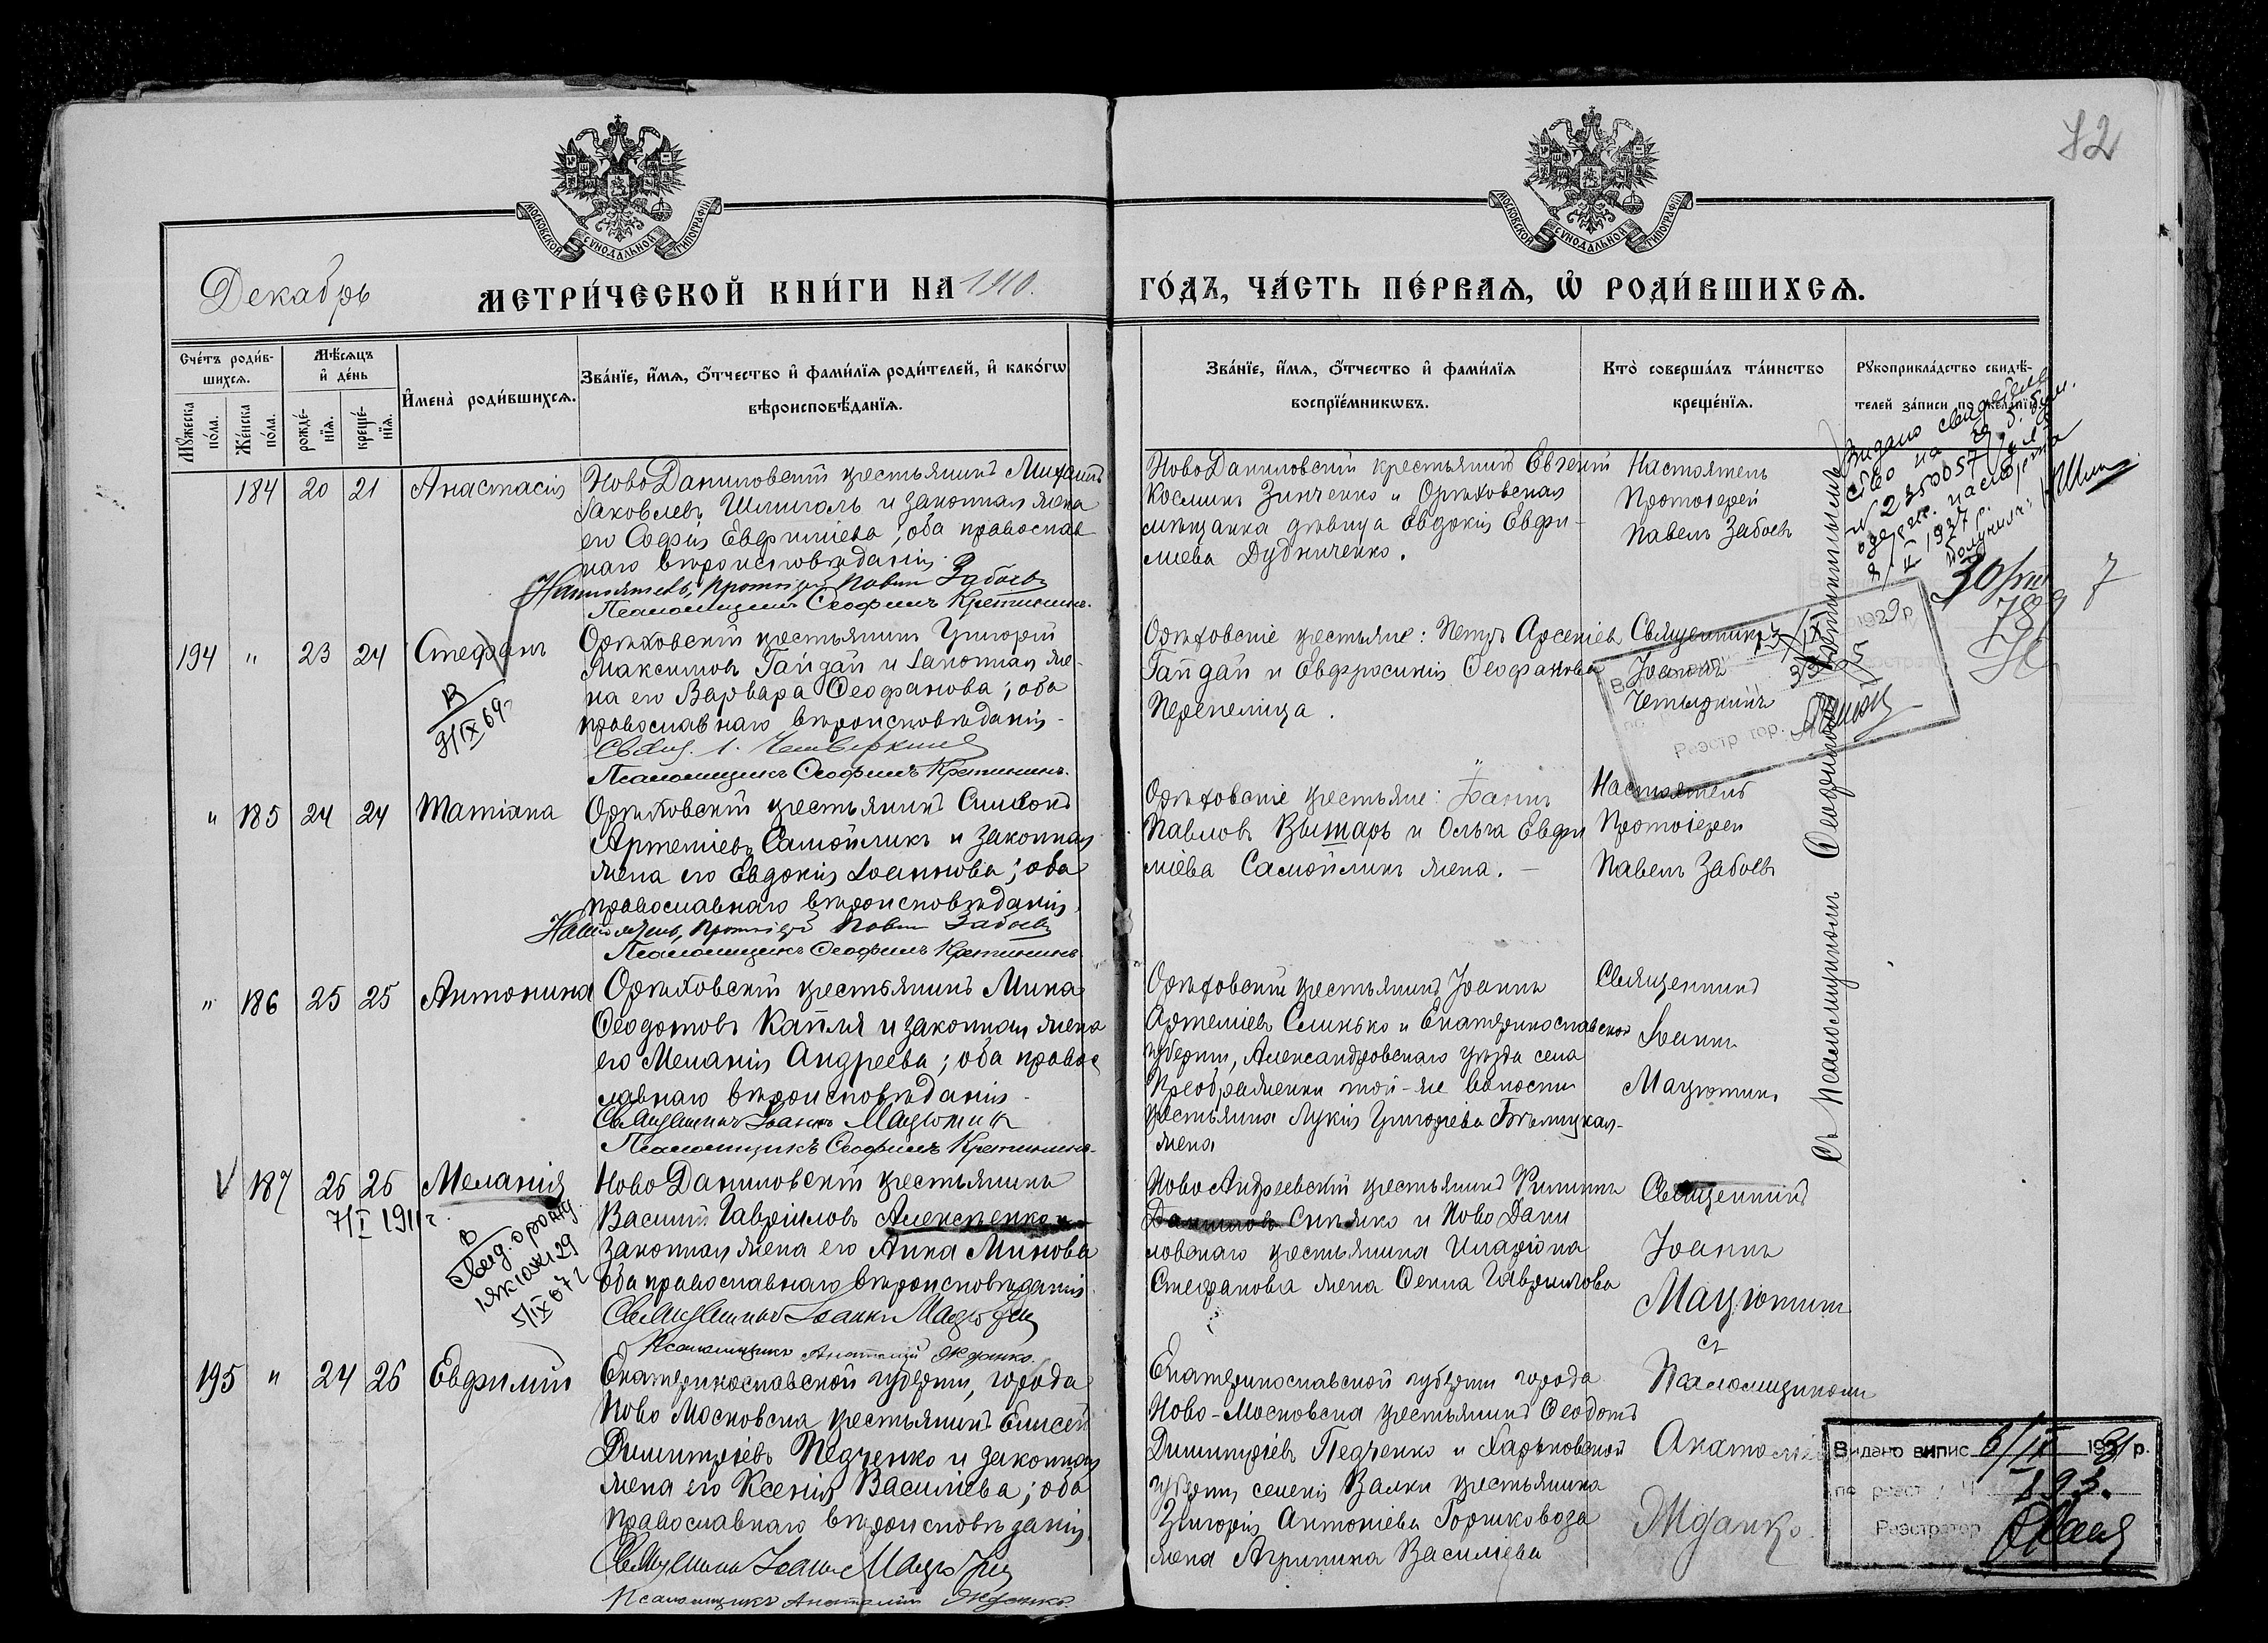 82
МОСКОВСКОЙ СУНОДАЛЬНОЙ ТИПОГРАФІИ
МОСКОВСКОЙ СУНОДАЛЬНОЙ ТИПОГРАФІИ
Декабрь
МЕТРИ́ЧЕСКОЙ КНИ́ГИ НА 1910.
ГО́ДЪ, ЧА́СТЬ ПЕ́РВАѦ, Ѡ҆ РОДИ́ВШИХСѦ.
Счéтъ роди́в-
шихсѧ.
Мꙋ́жеска по́ла.
Же́нска по́ла.
Мѣ́сѧцъ
и҆ де́нь
рожде́-
нїѧ.
креще́-
нїѧ.
И҆мена̀ роди́вшихсѧ.
Зва́нїе, и҆́мѧ, ѻ҆́тчество и҆ фами́лїѧ роди́телей, и҆ како́гѡ
вѣроисповѣ́данїѧ.
Зва́нїе, и҆́мѧ, ѻ҆́тчество и҆ фами́лїѧ
воспрїе́мникѡвъ.
Кто̀ соверша́лъ та́инство
креще́нїѧ.
Рꙋкоприкла́дство свидѣ́-
телей за́писи по жела́нїю.
184 20 21 Анастасія
Ново Даниловскій крестьянинъ Михаилъ
Іаковлевъ Шпиголь и законная жена
его Софія Евфиміева; оба православ
наго вѣроисповѣданія.
Настоятель, Протоіерей Павелъ Забоевъ
Псаломщикъ Ѳеофилъ Кретининъ.
Ново Даниловскій крестьянинъ Евгеній
Космінъ Зинченко и Орѣховская
мѣщанка дѣвица Евдокія Евфи-
міева Дудниченко.
Настоятель
Протоіерей
Павелъ Забоевъ
Видано свидѣтель
ство на
N 2350057
1927 р.
194 " 23 24 Стефанъ
В
9/IX 69 г
Орѣховскій крестьянинъ Григорій
Максимовъ Гайдай и законная же-
на его Варвара Ѳеофанова; оба
православнаго вѣроисповѣданія.
Псаломщикъ Ѳеофилъ Кретининъ.
Орѣховскіе крестьяне: Петръ Арсеніев
Гайдай и Евфросинія Ѳеофанова
Перепелица.
Священникъ
Іоаннъ
1929 р
Реэстр тор.
789
7
" 185 24 24 Татіана
Орѣховскій крестьянинъ Симеонъ
Артеміевъ Самойликъ и законная
жена его Евдокія Іоаннова; оба
православнаго вѣроисповѣданія.
Настоятель, Протоіерей Павелъ Забоевъ
Псаломщикъ Ѳеофилъ Кретининъ
Орѣховскіе крестьяне: Іоаннъ
Павловъ Вытарь и Ольга Евфи
міева Самойликъ жена. —
Настоятель
Протоіерей
Павелъ Забоевъ
Съ Псаломщикомъ Ѳеофиломъ Кретининымъ
" 186 25 25 Антонина
Орѣховскій крестьянинъ Мина
Ѳеодотовъ Капля и законная жена
его Меланія Андреева; оба правос
лавнаго вѣроисповѣданія.
Священникъ Іоаннъ Мацютинъ
Псаломщикъ Ѳеофилъ Кретининъ.
Орѣховскій крестьянинъ Іоаннъ
Артеміевъ Слинько и Екатеринославской
губерніи, Александровскаго уѣзда села
Преображенки той-же волости
крестьянина Лукія Григорьева Бѣлицкая-
жена
Священникъ
Іоаннъ
Мацютинъ
V 187 25 26 Меланія
7/I 1911 г.
В
Свид. о рожд.
5/IX 67 г
Ново Даниловскій крестьянинъ
Василій Гавріиловъ Алексѣенко и
законная жена его Анна Минова
оба православнаго вѣроисповѣданія.
Священникъ Іоаннъ Мацютинъ
Псаломщикъ Анатолій Жданко.
Ново Андреевскій крестьянинъ Филиппъ
Даниловъ Ситько и Ново Дани
ловскаго крестьянина Иларіона
Стефанова жена Ѳекла Гавріилова
Священникъ
Іоаннъ
Мацютинъ
195 " 24 26 Евфимій
Екатеринославской губерніи, города
Ново Московска крестьянинъ Елисей
Димитріевъ Педченко и законная
жена его Ксенія Василіева; оба
православнаго вѣроисповѣданія.
Священникъ Іоаннъ Мацютинъ
Псаломщикъ Анатолій Жданко.
Екатеринославской губерніи города
Ново-Московска крестьянинъ Ѳеодотъ
Димитріевъ Педченко и Харьковской
губерніи селенія Валки крестьянина
Григорія Антоніева Горшковоза
жена Агрипина Василіева
съ
Псаломщикомъ
Анатоліемъ
Жданко.
Видано випис 6/IX 1931 р.
по реэстру Ч 193.
Реэстратор